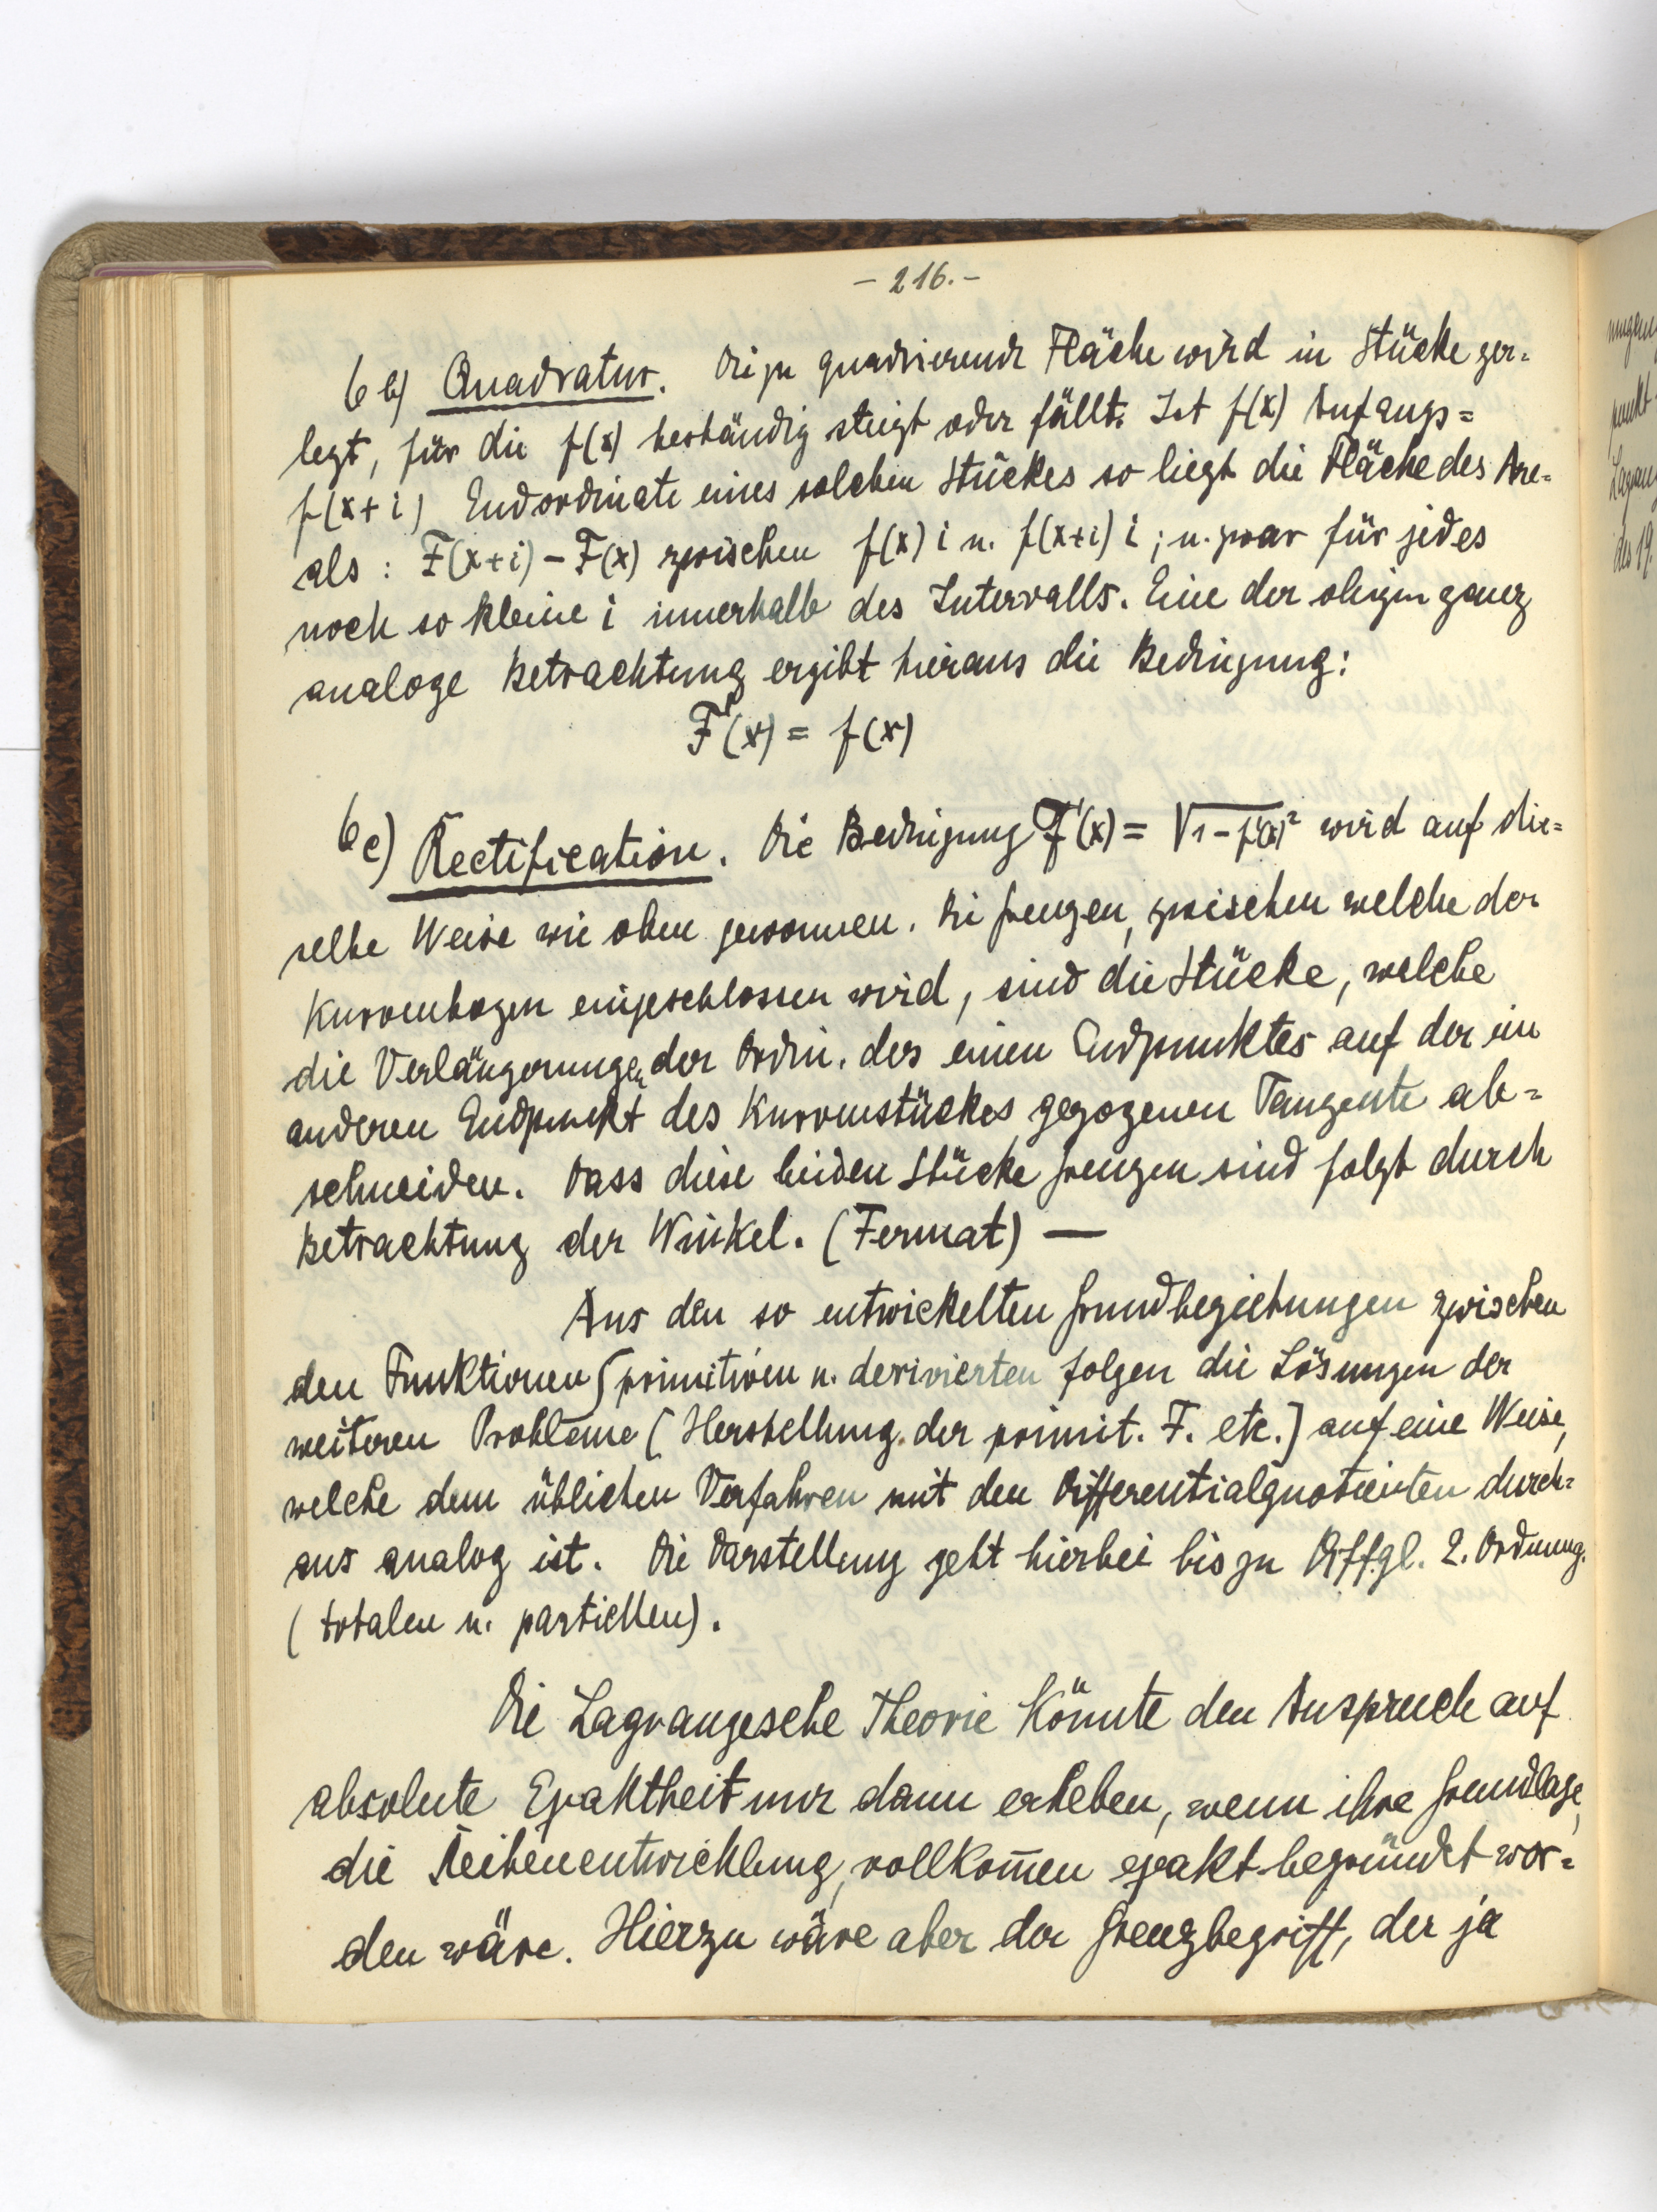 - 216. -
6 b) Quadratur. Die zu quadrierende Fläche wird in Stücke zer=
legt, für die f(x) beständig steigt oder fällt. Ist f(x) Anfangs=
f(x+i) Endordinate eines solchen Stückes so liegt die Fläche des Are=
als : F(x+i) - F(x) zwischen f(x) i u. f(x+i) i ; u. zwar für jedes
noch so kleine i innerhalb des Intervalls. Eine der obigen ganz
analoge Betrachtung ergibt hieraus die Bedingung:
F'(x) = f(x)
6 c) Rectification. Die Bedingung F'(x) = √1-f'(x)² wird auf die=
selbe Weise wie oben gewonnen. Die Grenzen, zwischen welche der
Kurvenbogen eingeschlossen wird, sind die Stücke, welche
die Verlängerungen der Ordin. des einen Endpunktes auf der im
anderen Endpunkt des Kurvenstückes gezogenen Tangente ab=
schneiden. Dass diese beiden Stücke Grenzen sind folgt durch
Betrachtung der Winkel. (Fermat) —
Aus den so entwickelten Grundbeziehungen zwischen
den Funktionen (primitiven u. derivierten folgen die Lösungen der
weiteren Probleme (Herstellung der primit. F. etc.) auf eine Weise,
welche dem üblichen Verfahren mit den Differentialquotienten durch=
aus analog ist. Die Darstellung geht hierbei bis zu Diffgl. 2. Ordnung.
(totalen u. partiellen).
Die Lagrangesche Theorie könnte den Anspruch auf
absolute Exaktheit nur dann erheben, wenn ihre Grundlage,
die Reihenentwicklung, vollkom̅en exakt begründet wor=
den wäre. Hierzu wäre aber der Grenzbegriff, der ja